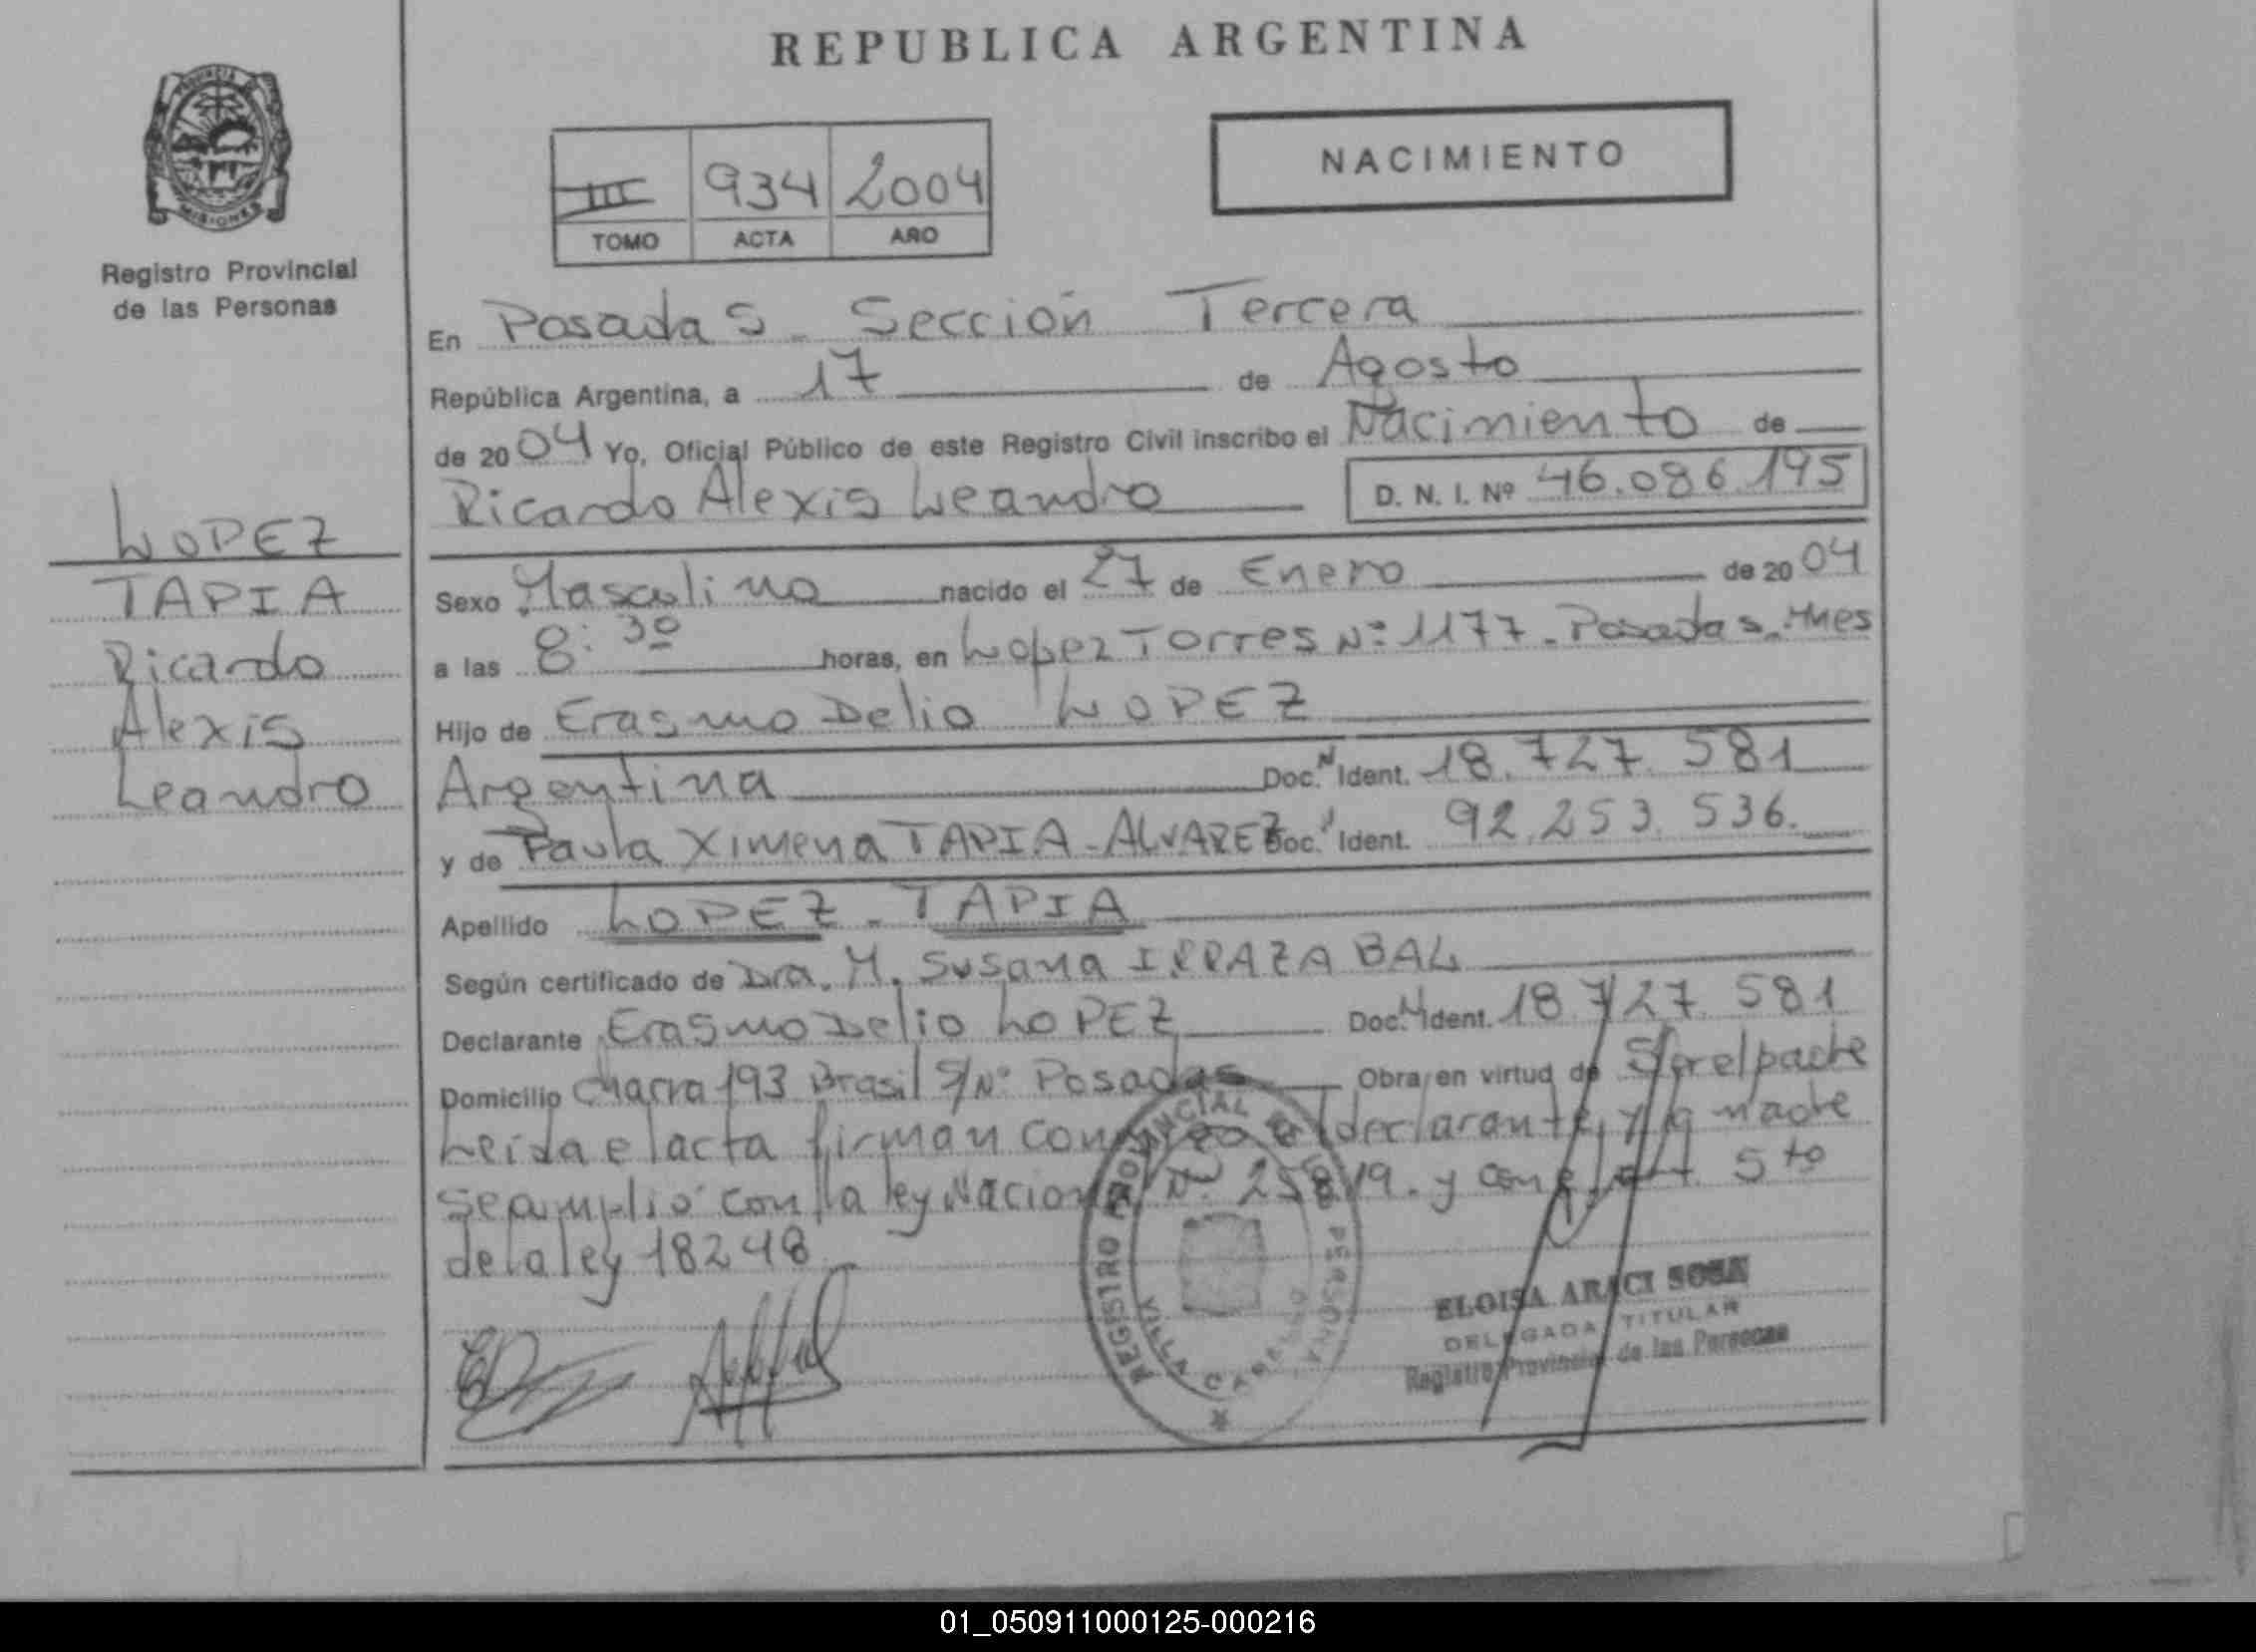 REPUBLICA ARGENTINA
PROVINCIA
MISIONES
Registro Provincial
de las Personas
III 934 2004
TOMO ACTA AÑO
NACIMIENTO
En Posadas - Sección Tercera
República Argentina, a 17 de Agosto
de 2004 Yo, Oficial Público de este Registro Civil inscribo el Nacimiento de
Ricardo Alexis Leandro D. N. I. Nº 46.086.195
LOPEZ
TAPIA
Ricardo
Alexis
Leandro
Sexo Masculino nacido el 27 de Enero de 2004
a las 8:30 horas, en Lopez Torres Nº 1177 - Posadas - Mnes
Hijo de Erasmo Delio LOPEZ
Argentina Doc. N Ident. 18.727.581
y de Paula Ximena TAPIA - ALVAREZ Doc. Ident. 92.253.536.
Apellido LOPEZ - TAPIA
Según certificado de Dra. M. Susana IRRAZABAL
Declarante Erasmo Delio LOPEZ Doc. N Ident. 18.727.581
Domicilio Chacra 193 Brasil S/Nº Posadas Obra en virtud de Ser el padre
Leída el acta firman conmigo el declarante y la madre
se amplió con la ley Nacional Nº 25819. y con el art. 5to
de la ley 18248
REGISTRO PROVINCIAL DE LAS PERSONAS
VILLA CABELLO
ELOISA ARACI SOSA
DELEGADA TITULAR
Registro Provincial de las Personas
01_050911000125-000216